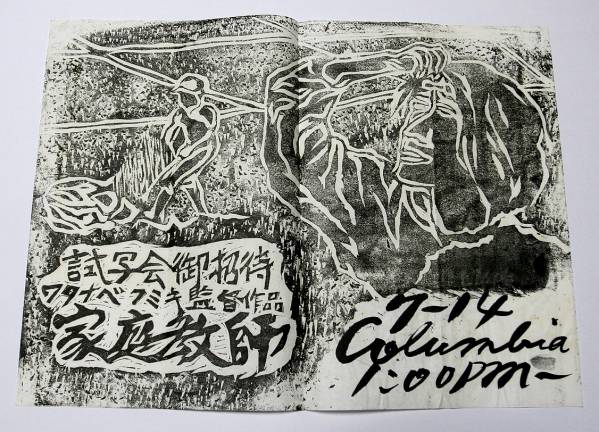 試写会御招待
ワタナベフミキ監督作品
家庭教師
7-14
Columbia
1:00PM-